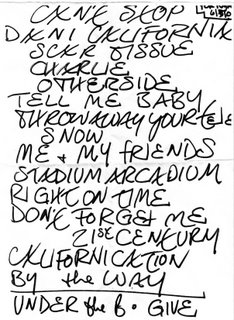 CAN'T STOP
DANI CALIFORNIA
SCAR TISSUE
CHARLIE
OTHERSIDE
TELL ME BABY
THROW AWAY YOUR TELE
SNOW
ME + MY FRIENDS
STADIUM ARCADIUM
RIGHT ON TIME
DON'T FORGET ME
21st CENTURY
CALIFORNICATION
By the WAY
UNDER the B. GIVE